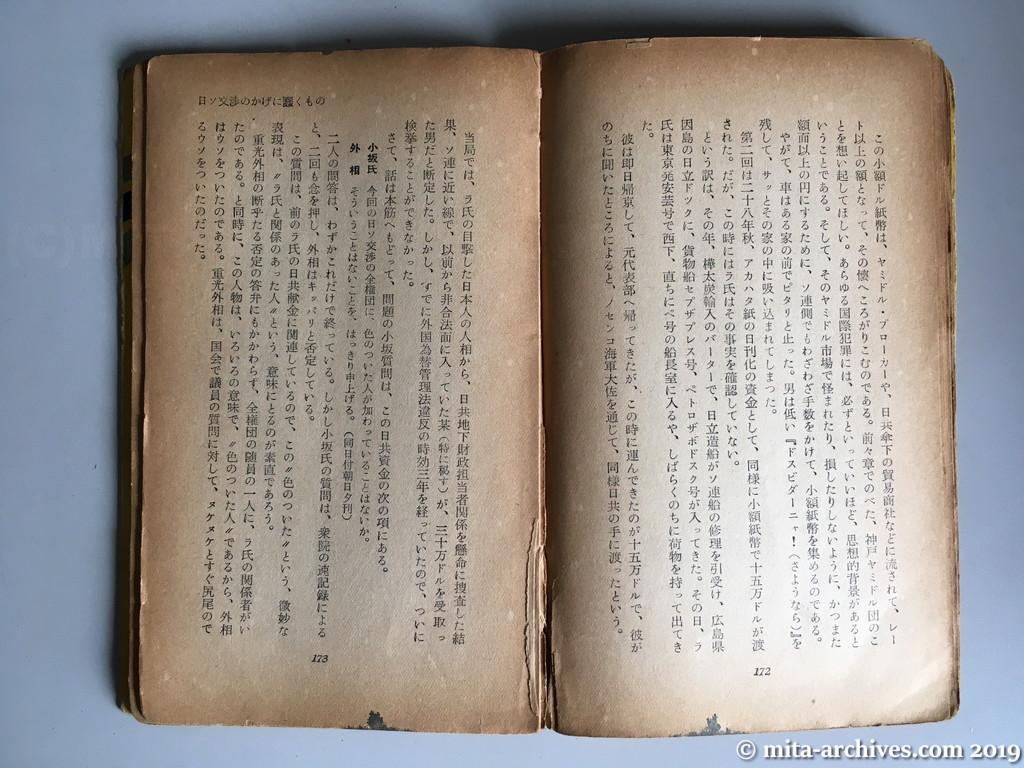 この小額ドル紙幣は、ヤミドル・ブローカーや、日共傘下の貿易商社などに流されて、レー
ト以上の額となって、その懐へころがりこむのである。前々章でのべた、神戸ヤミドル団のこ
とを想い起してほしい。あらゆる国際犯罪には、必ずといっていいほど、思想的背景があると
いうことである。そして、そのヤミドル市場で怪まれたり、損したりしないように、かつまた
額面以上の円にするために、ソ連側でもわざわざ手数をかけて、小額紙幣を集めるのである。
やがて、車はある家の前でピタリと止った。男は低い『ドスビダーニャ!(さようなら)』を
残して、サッとその家の中に吸い込まれてしまつた。
第二回は二十八年秋、アカハタ紙の日刊化の資金として、同様に小額紙幣で十五万ドルが渡
された。だが、この時にはラ氏はその事実を確認していない。
という訳は、その年、樺太炭輸入のバーターで、日立造船がソ連船の修理を引受け、広島県
因島の日立ドックに、貨物船セブザプレス号、ペトロザボドスク号が入ってきた。その日、ラ
氏は東京発安芸号で西下、直ちにペ号の船長室に入るや、しばらくのちに荷物を持って出てき
た。
彼は即日帰京して、元代表部へ帰ってきたが、この時に運んできたのが十五万ドルで、彼が
のちに聞いたところによると、ノセンコ海軍大佐を通じて、同様日共の手に渡ったという。
172
日ソ交渉のかげに蠢くもの
当局では、ラ氏の目撃した日本人の人相から、日共地下財政担当者関係を懸命に捜査した結
果、ソ連に近い線で、以前から非合法面に入っていた某(特に秘す)が、三十万ドルを受取っ
た男だと断定した。しかし、すでに外国為替管理法違反の時効三年を経っていたので、ついに
検挙することができなかった。
さて、話は本筋へもどって、問題の小坂質問は、この日共資金の次の項にある。
小坂氏 今回の日ソ交渉の全権団に、色のついた人が加わっていることはないか。
外相 そういうことはないことを、はっきり申上げる。(同日付朝日夕刊)
二人の問答は、わずかこれだけで終っている。しかし小坂氏の質問は、衆院の速記録による
と、二回も念を押し、外相はキッパリと否定している。
この質問は、前のラ氏の日共献金に関連しているので、この〝色のついた〟という、微妙な
表現は、〝ラ氏と関係のあった人〟という、意味にとるのが素直であろう。
重光外相の断乎たる否定の答弁にもかかわらず、全権団の随員の一人に、ラ氏の関係者がい
たのである。と同時に、この人物は、いろいろの意味で、〝色のついた人〟であるから、外相
はウソをついたのである。重光外相は、国会で議員の質問に対して、ヌケヌケとすぐ尻尾ので
るウソをついたのだった。
173
© mita-archives.com 2019